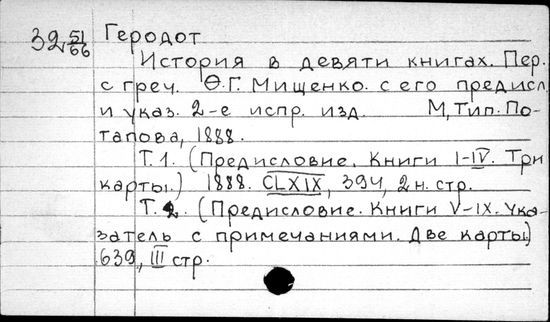 32 51/66 Геродот
История в девяти книгах. Пер.
с греч. Ѳ.Г. Мищенко. с его предисл.
и указ. 2-е испр. изд. М, Тип. По-
тапова, 1888.
Т. 1. (Предисловие. Книги I-IV. Три
карты.) 1888. CLXIX, 394, 2 н. стр.
Т. 2. (Предисловие. Книги V-IX. Ука-
затель с примечаниями. Две карты)
639, III стр.